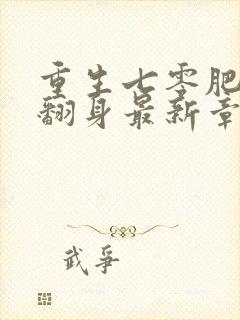 重生七零肥
翻身最新章
武爭